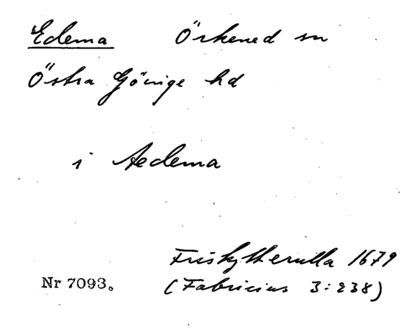 Edema Örkened sn
Östra Göinge hd
i Aedema
Friskytterulla 1679
Nr 7093. (Fabricius 3:238)